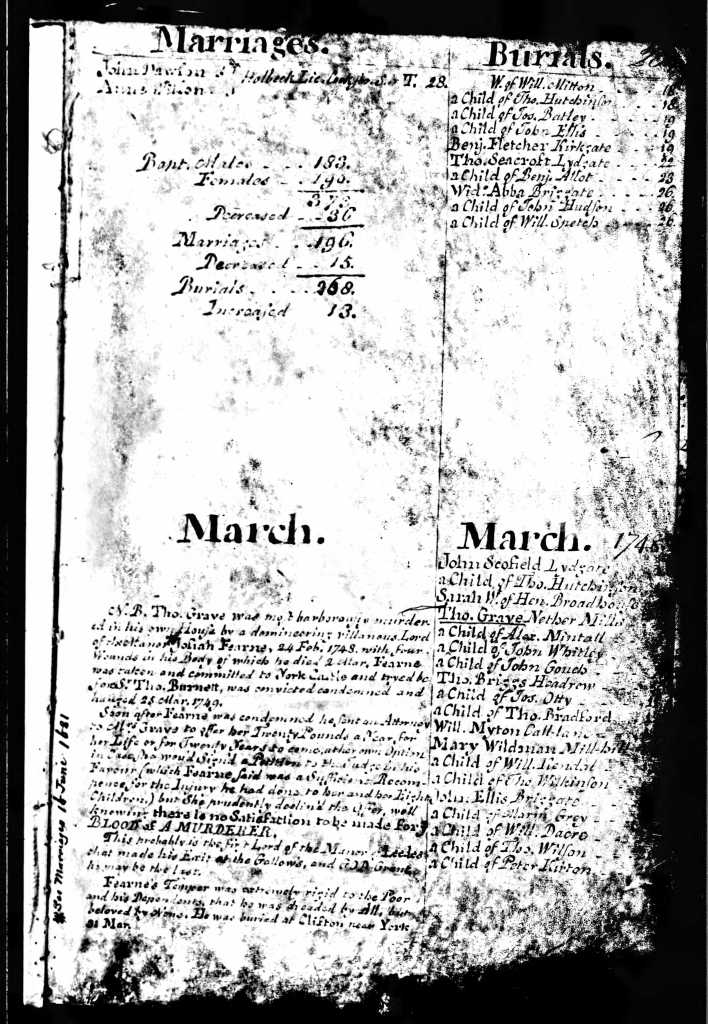 Marriages.
John Dawson
Anne Wilson
Holbeck Lic. T. 28.
Bapt. Males 183.
Females 190.
373
Decreased 36
Marriages 196.
Decreased 15.
Burials 268.
Increased 13.
Burials.
W. of Will. Mitton 16
a Child of Tho. Hutchinson 18
a Child of Jos. Batley 19
a Child of John Ellis 19
Benj. Fletcher Kirkgate 19
Tho. Seacroft Lydgate 22
a Child of Benj. Allot 23
Wid. Abba Briggate 26
a Child of John Hudson 26
a Child of Will. 26
March.
N. B. Tho. Grave was most barborously murder
ed in his own House by a domineering villanous Lord
of Manor Josiah Fearne, 24 Feb. 1748. with four
Wounds in his Body of which he died 2 Mar. Fearne
was taken and committed to York Castle and tryed be
fore S. Tho. Burnett, was convicted condemned and
hanged 25 Mar. 1749.
Soon after Fearne was condemned he sent an Attorney
to Mrs Grave to offer her Twenty Pounds a Year, for
her Life or, for Twenty Years to come, at her own Option
in Case, she woud Sign a Petition to the Judge in his
Favour (which Fearne, said was a Sufficient Recom
pence, for the Injury he had done, to her and her Eight
Children,) but She prudently declin'd the Offer, well
knowing there is no Satisfaction to be made For
BLOOD of A MURDERER.
This probably is the first Lord of the Manor
that made his Exit at the Gallows, and GOD Grant,
he may be the last.
Fearne's Temper was extremely rigid to the Poor
and his Dependents, that he was dreaded by All, but
beloved by None. He was buried at Clifton near York
31 Mar.
March. 1748
John Scofield Lydgate
a Child of Tho. Hutchinson
Sarah W. of Hen. Broadhouse
Tho. Grave Nether Mills
a Child of Alex. Mintall
a Child of John Whitley
a Child of John Gouch
Tho. Briggs Headrow
a Child of Jos. Otty
a Child of Tho. Bradford
Will. Myton Call-lane
Mary Wildman Mill-hill
a Child of Will.
a Child of Tho. Wilkinson
John. Ellis Briggate
a Child of Marm. Grey
a Child of Will. Dacre
a Child of Tho. Wilson
a Child of Peter Kirton
See Marriages 16 June 1681